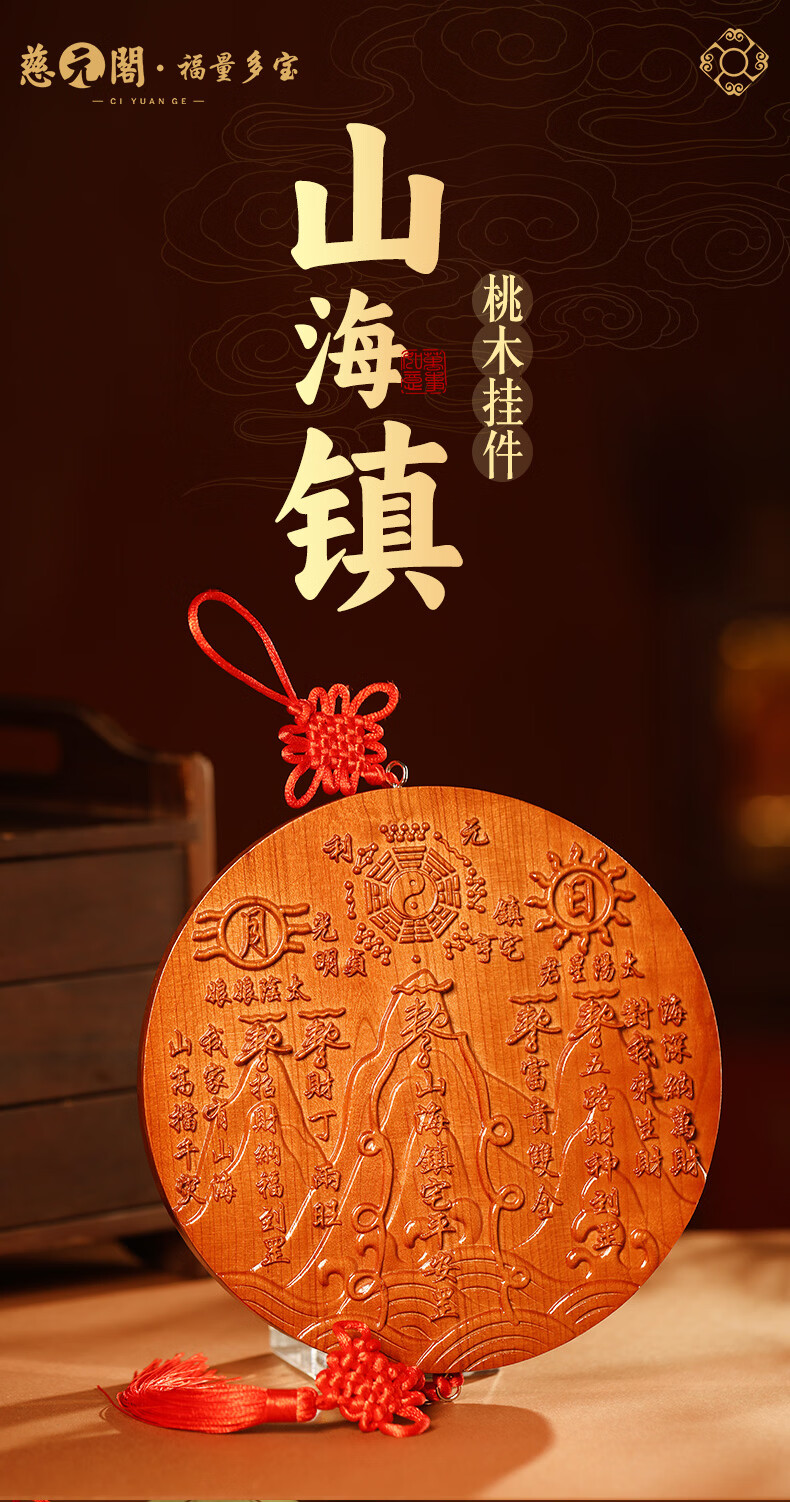 慈元阁·福量多宝
CI YUAN GE
山海镇
萬事如意
桃木挂件
元
利
鎮宅
亨
光明
貞
日
月
太陽星君
太陰娘娘
海深納萬財
對我來生財
五路財神到罡
富貴雙全
山海鎮宅平安罡
財丁兩旺
招財納福到罡
我家有山海
山高擋千災